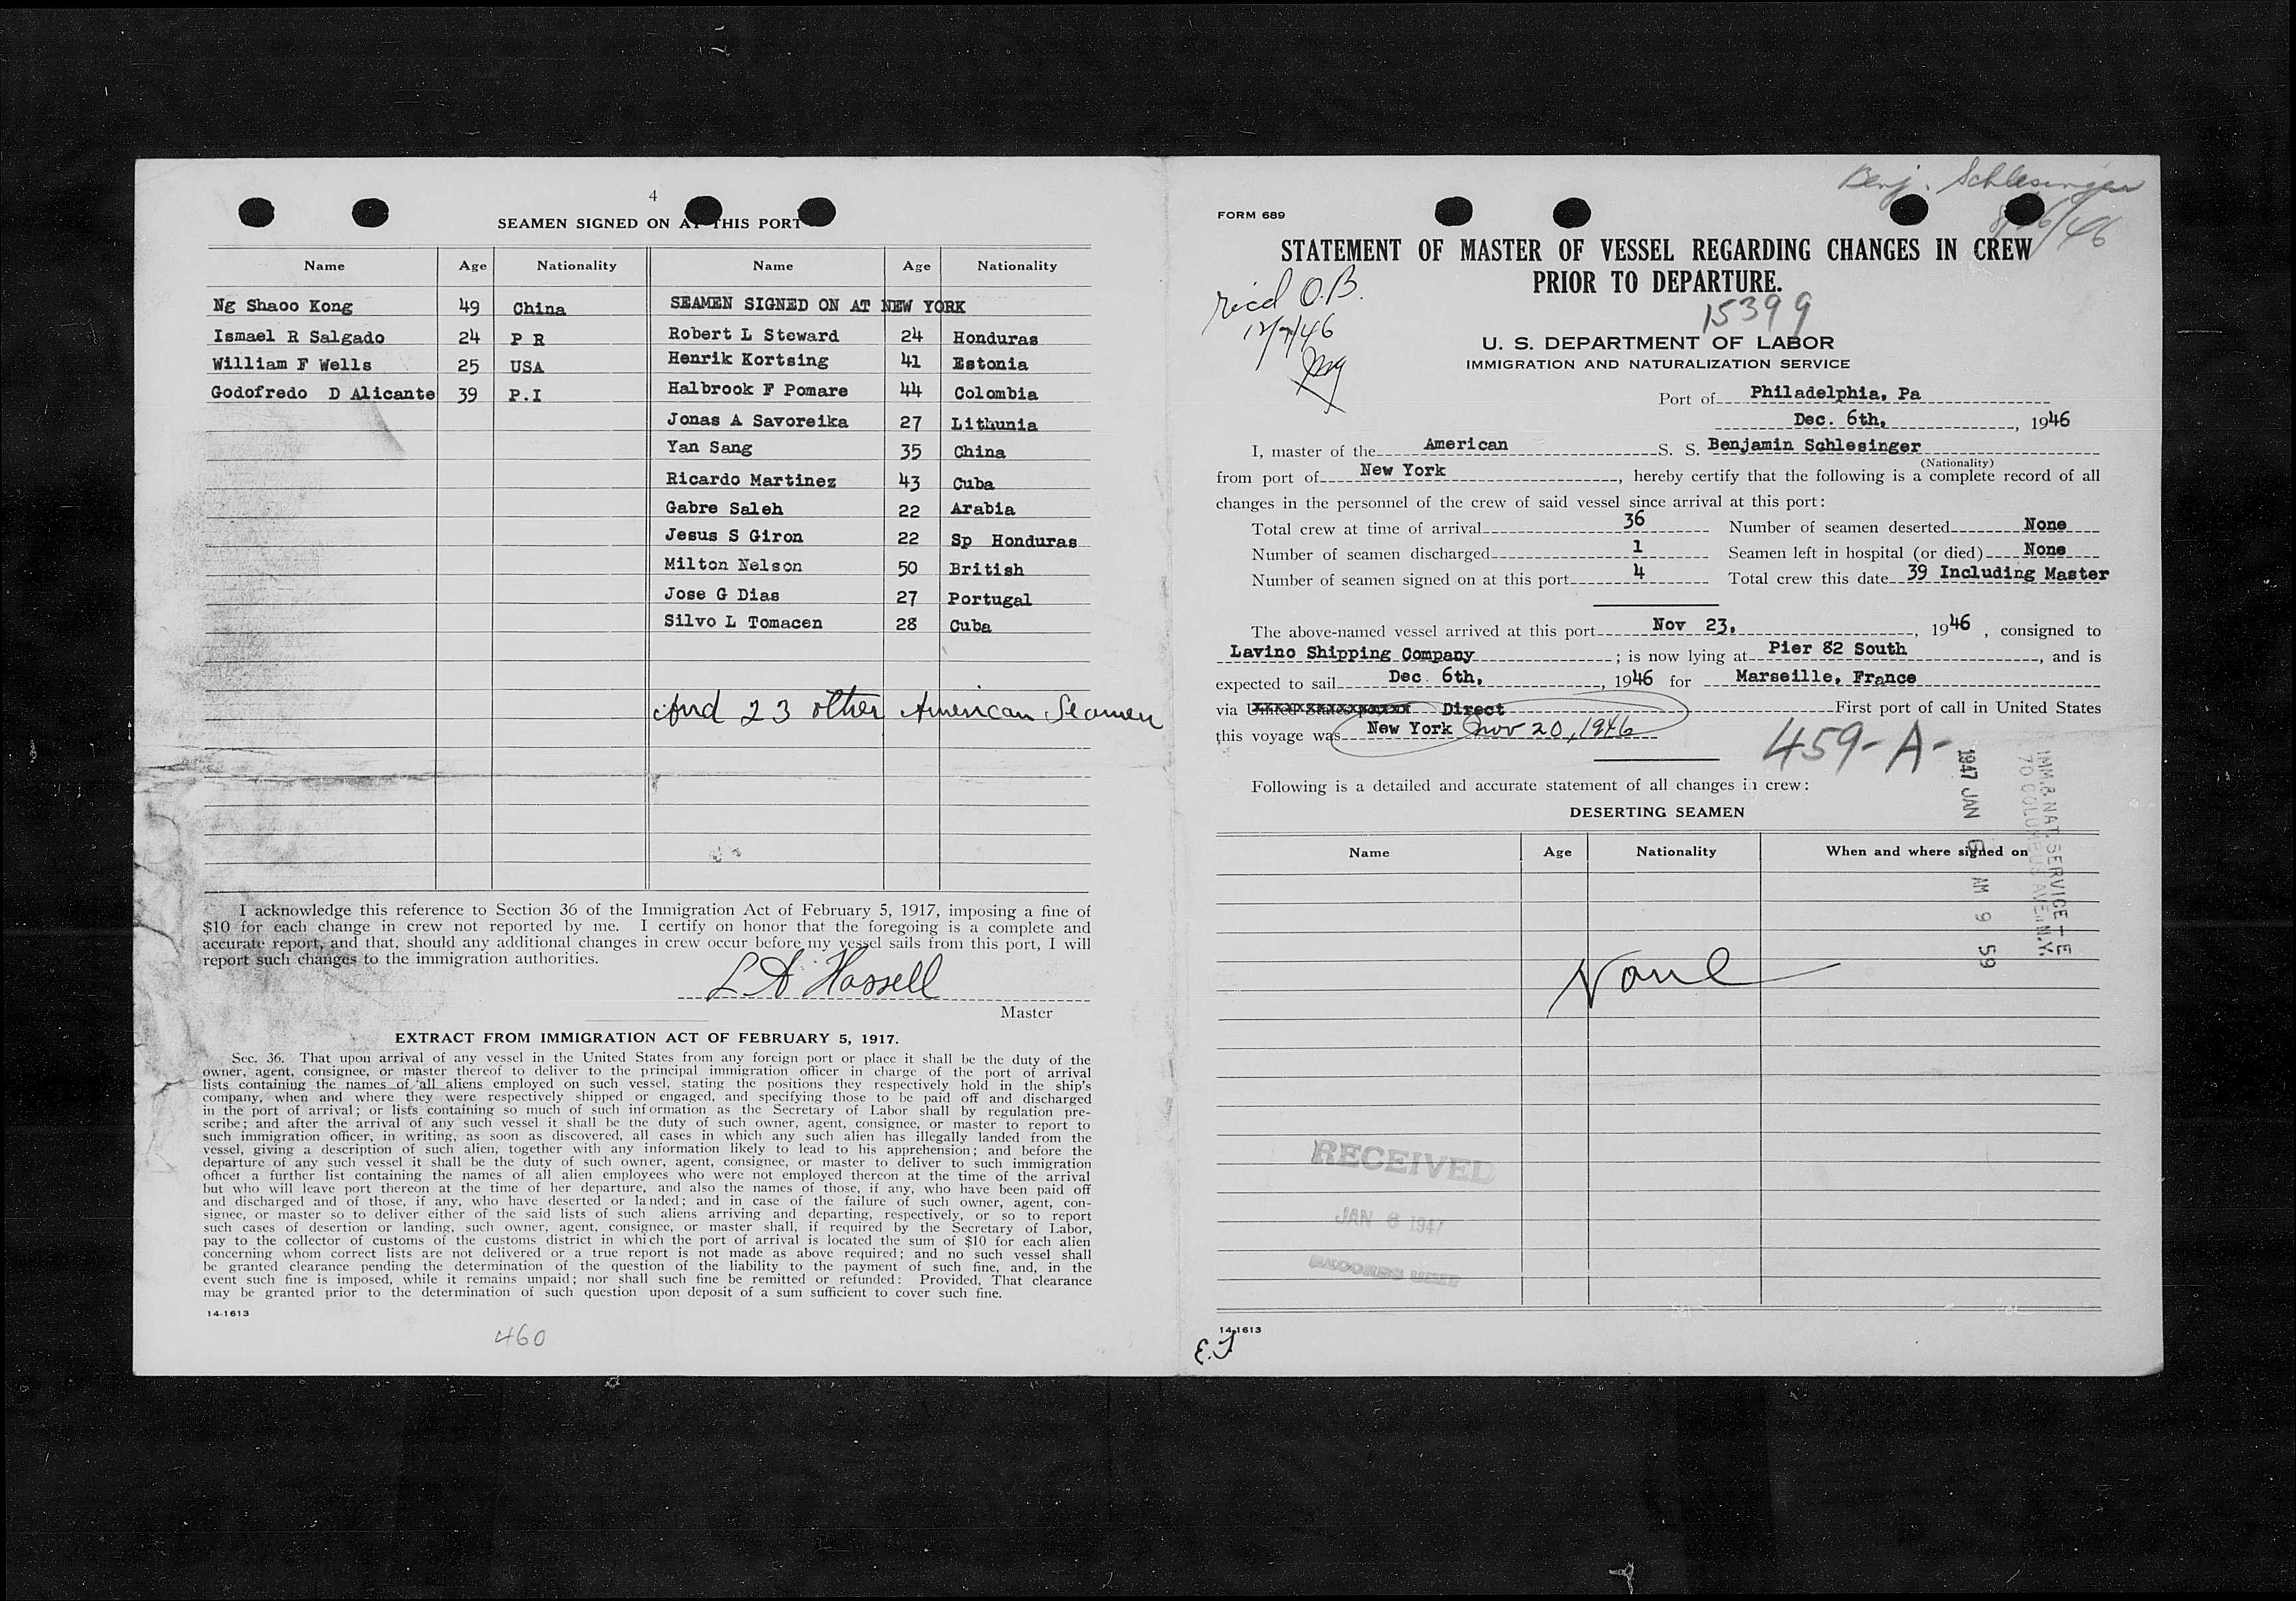 4
SEAMEN SIGNED ON AT THIS PORT
Name Age Nationality Name Age Nationality
Ng Shaoo Kong 49 China
Ismael R Salgado 24 P R
William F Wells 25 USA
Godofredo D Alicante 39 P.I
SEAMEN SIGNED ON AT NEW YORK
Robert L Steward 24 Honduras
Henrik Kortsing 41 Estonia
Halbrook F Pomare 44 Colombia
Jonas A Savoreika 27 Lithunia
Yan Sang 35 China
Ricardo Martinez 43 Cuba
Gabre Saleh 22 Arabia
Jesus S Giron 22 Sp Honduras
Milton Nelson 50 British
Jose G Dias 27 Portugal
Silvo L Tomacen 28 Cuba
And 23 other American Seamen
I acknowledge this reference to Section 36 of the Immigration Act of February 5, 1917, imposing a fine of
$10 for each change in crew not reported by me. I certify on honor that the foregoing is a complete and
accurate report, and that, should any additional changes in crew occur before my vessel sails from this port, I will
report such changes to the immigration authorities.
L A Hassell
Master
EXTRACT FROM IMMIGRATION ACT OF FEBRUARY 5, 1917.
Sec. 36. That upon arrival of any vessel in the United States from any foreign port or place it shall be the duty of the
owner, agent, consignee, or master thereof to deliver to the principal immigration officer in charge of the port of arrival
lists containing the names of all aliens employed on such vessel, stating the positions they respectively hold in the ship's
company, when and where they were respectively shipped or engaged, and specifying those to be paid off and discharged
in the port of arrival; or lists containing so much of such information as the Secretary of Labor shall by regulation pre-
scribe; and after the arrival of any such vessel it shall be the duty of such owner, agent, consignee, or master to report to
such immigration officer, in writing, as soon as discovered, all cases in which any such alien has illegally landed from the
vessel, giving a description of such alien, together with any information likely to lead to his apprehension; and before the
departure of any such vessel it shall be the duty of such owner, agent, consignee, or master to deliver to such immigration
officer a further list containing the names of all alien employees who were not employed thereon at the time of the arrival
but who will leave port thereon at the time of her departure, and also the names of those, if any, who have been paid off
and discharged and of those, if any, who have deserted or landed; and in case of the failure of such owner, agent, con-
signee, or master so to deliver either of the said lists of such aliens arriving and departing, respectively, or so to report
such cases of desertion or landing, such owner, agent, consignee, or master shall, if required by the Secretary of Labor,
pay to the collector of customs of the customs district in which the port of arrival is located the sum of $10 for each alien
concerning whom correct lists are not delivered or a true report is not made as above required; and no such vessel shall
be granted clearance pending the determination of the question of the liability to the payment of such fine, and, in the
event such fine is imposed, while it remains unpaid; nor shall such fine be remitted or refunded: Provided, That clearance
may be granted prior to the determination of such question upon deposit of a sum sufficient to cover such fine.
14-1613
460
Benj. Schlesinger
FORM 689
STATEMENT OF MASTER OF VESSEL REGARDING CHANGES IN CREW
PRIOR TO DEPARTURE.
recd O.B.
12/7/46
15399
U. S. DEPARTMENT OF LABOR
IMMIGRATION AND NATURALIZATION SERVICE
Port of Philadelphia, Pa
Dec. 6th, , 1946
I, master of the American S. S. Benjamin Schlesinger
(Nationality)
from port of New York , hereby certify that the following is a complete record of all
changes in the personnel of the crew of said vessel since arrival at this port:
Total crew at time of arrival 36 Number of seamen deserted None
Number of seamen discharged 1 Seamen left in hospital (or died) None
Number of seamen signed on at this port 4 Total crew this date 39 Including Master
The above-named vessel arrived at this port Nov 23, , 1946 , consigned to
Lavino Shipping Company ; is now lying at Pier 82 South , and is
expected to sail Dec. 6th, , 1946 for Marseille, France
via Direct First port of call in United States
this voyage was New York Nov 20, 1946
459-A-
Following is a detailed and accurate statement of all changes in crew:
DESERTING SEAMEN
Name Age Nationality When and where signed on
IMM & NAT SERVICE - E
70 COLUMBUS AVE N.Y.
1947 JAN 6 AM 9 59
None
RECEIVED
JAN 6 1947
RECORDS UNIT
14-1613
E.J.